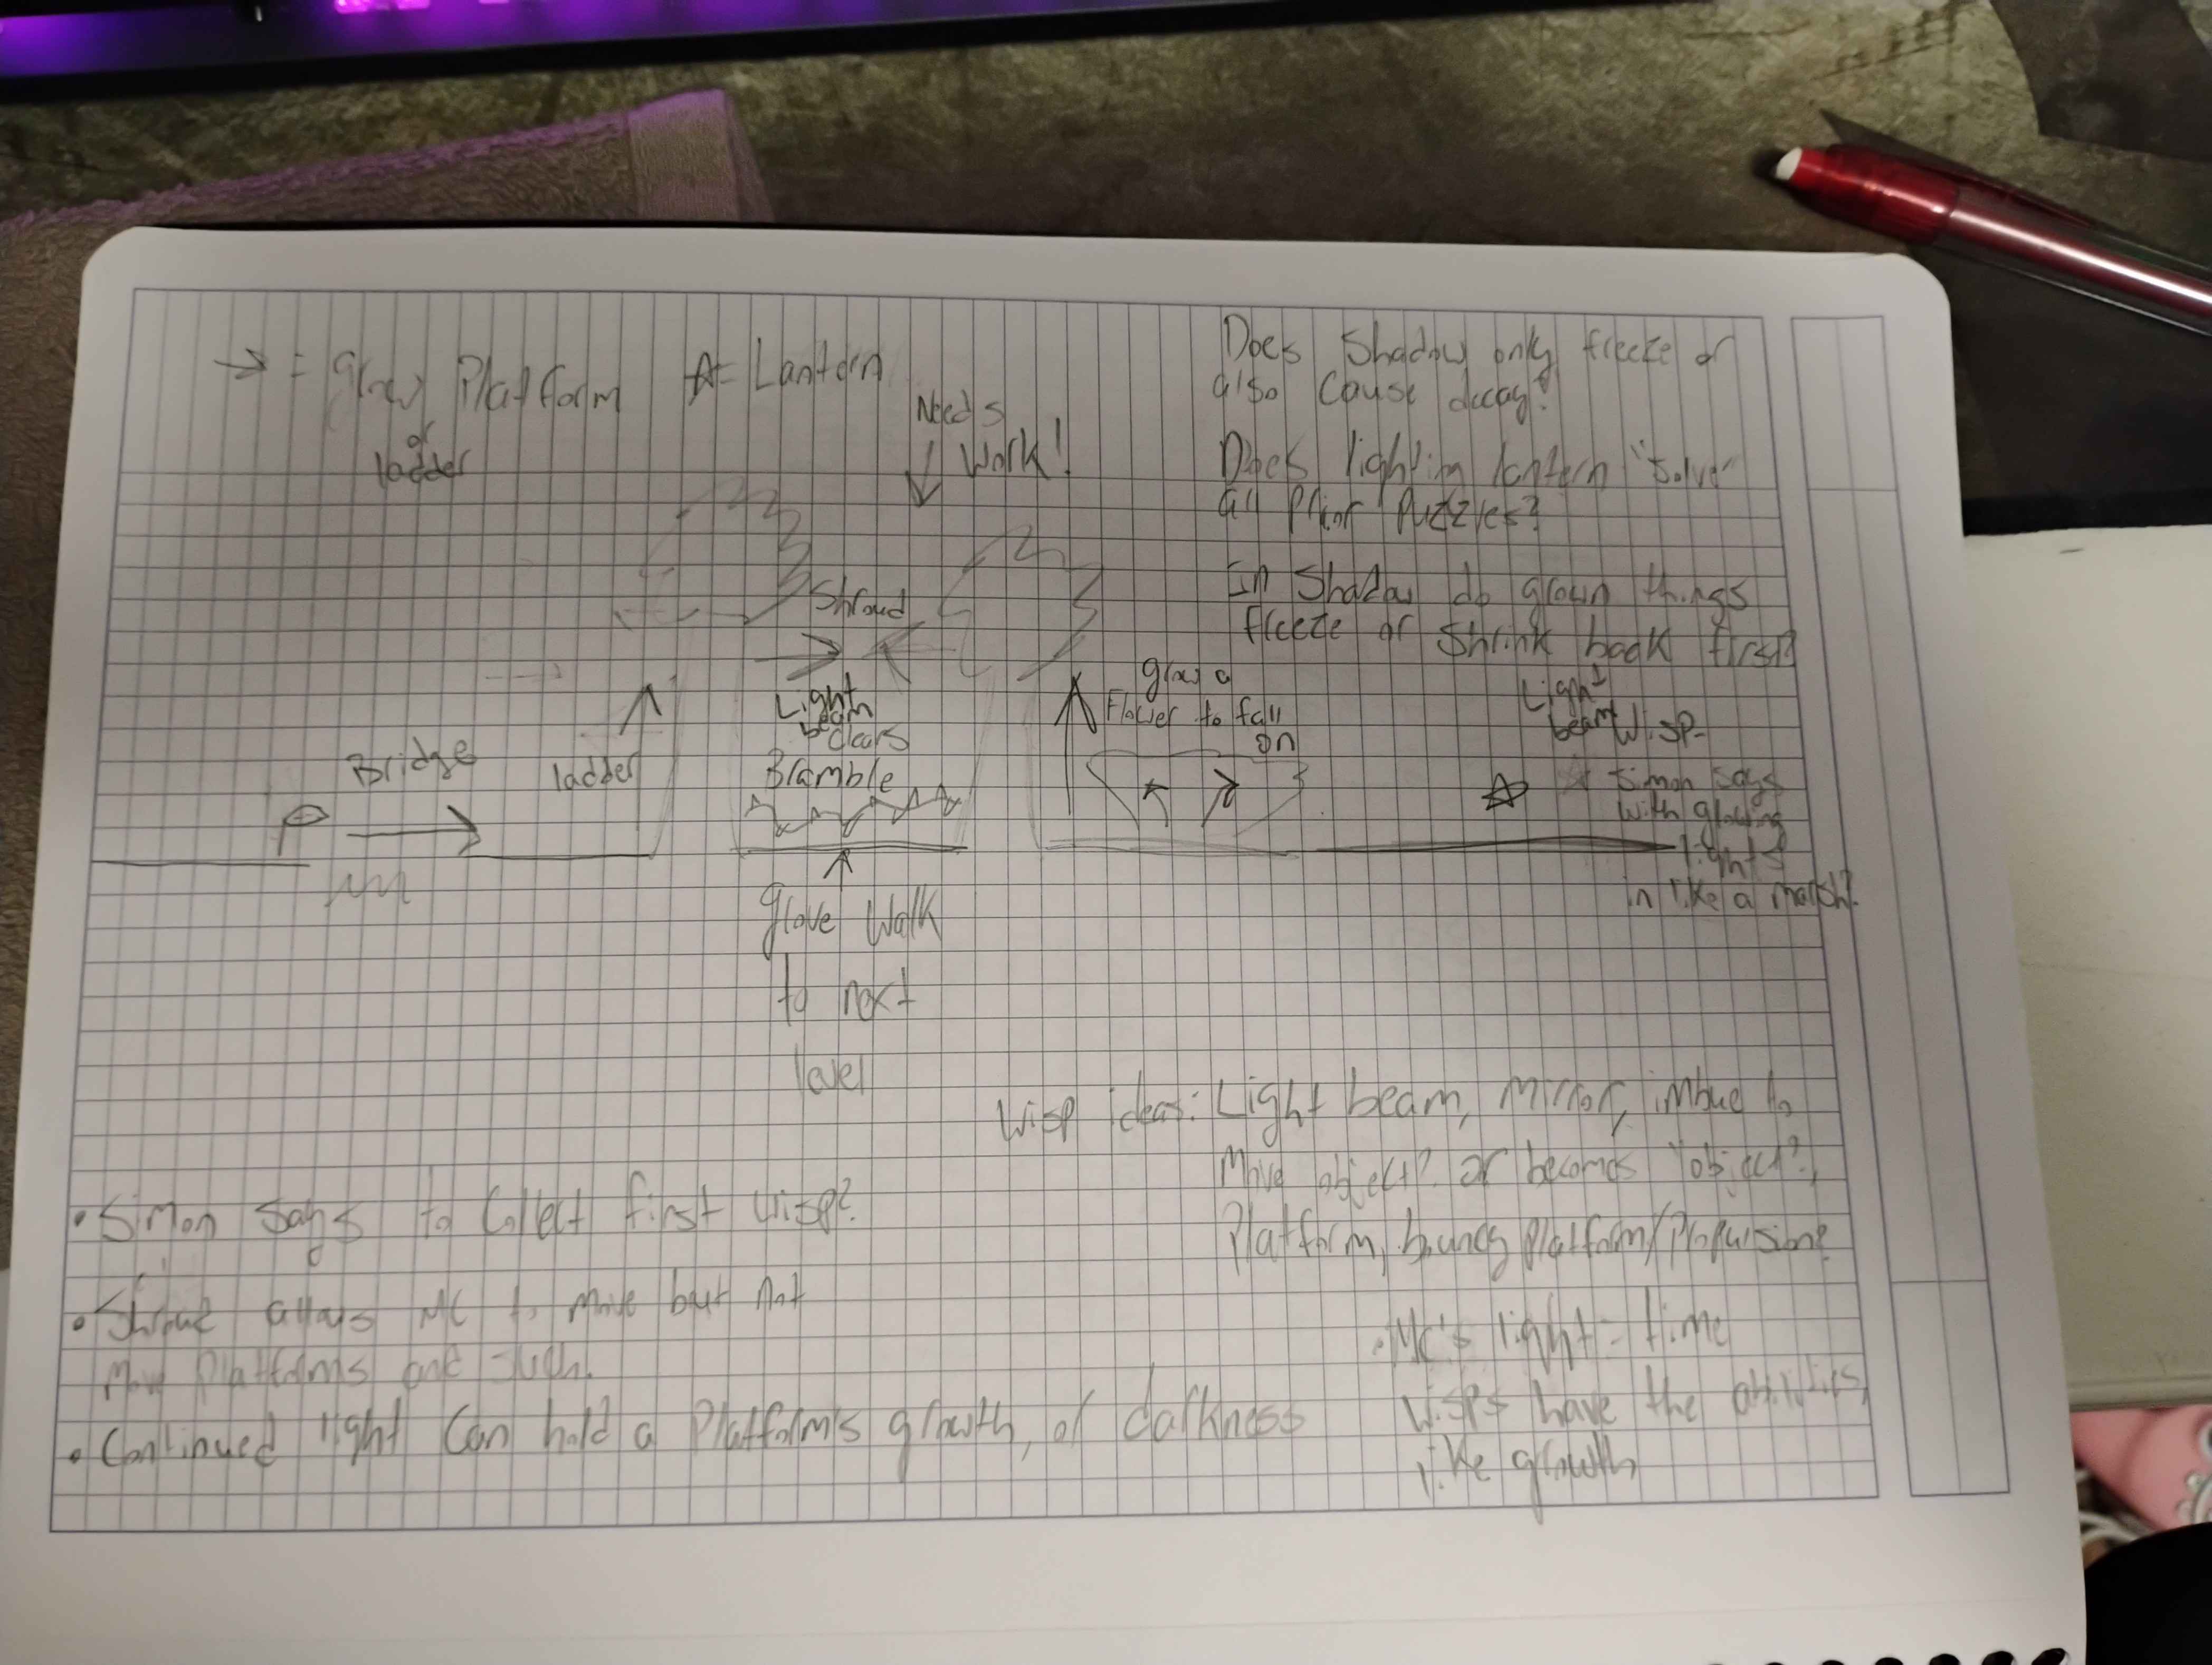 → = grow Platform
or
ladder
☆ = Lantern
Needs
↓ Work!
Does Shadow only freeze or
also cause decay?
Does lighting lantern "solve"
all Prior Puzzles?
In Shadow do grown things
freeze or Shrink back first?
Shroud
Bridge
ladder
Light
beam
clears
Bramble
grow a
Flower to fall
on
Light
beam Wisp
Simon Says
with glowing
lights
in like a marsh?
Walk
to next
level
Wisp ideas: Light beam, Mirror, imbue to
Move object? or becomes "object?",
Platform, bouncy Platform/Propulsion?
• Simon Says to Collect first Wisp?
• allows MC to Move but not
Move Platforms and such.
• Continued light Can hold a Platform's growth, or darkness
• MC's light = time
Wisps have the abilities,
like growth